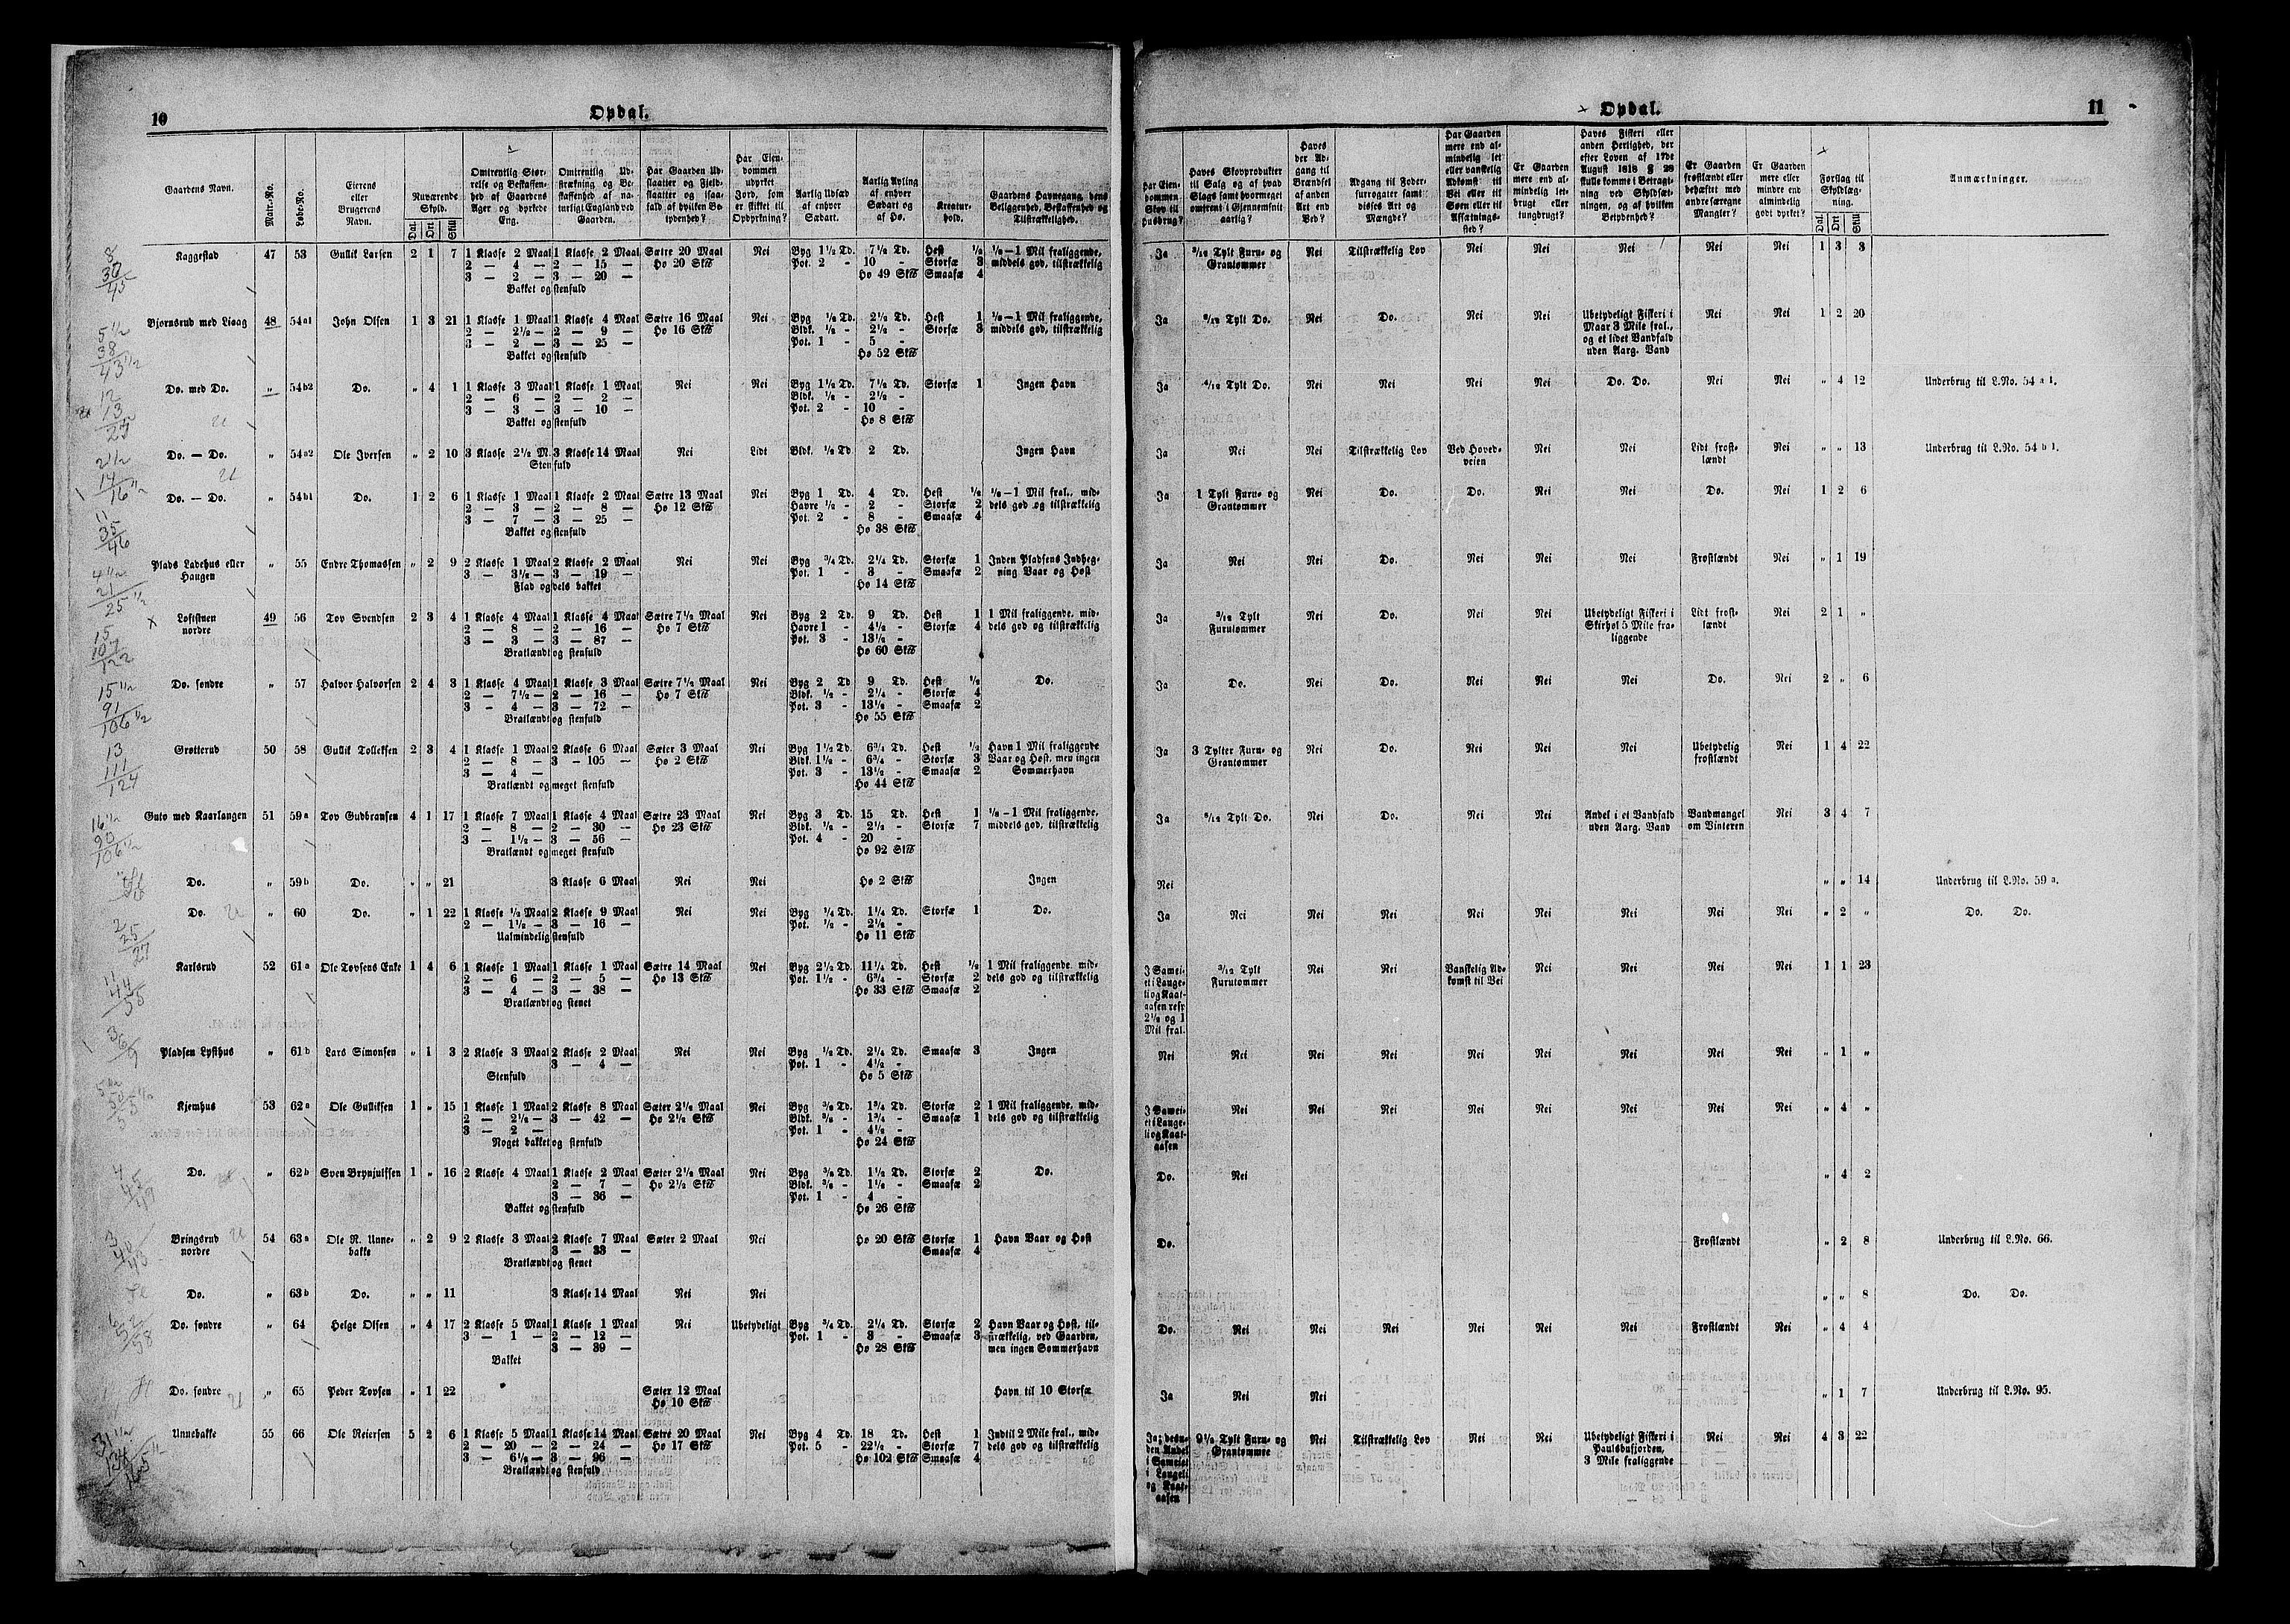 10
Opdal.
Gaardens Navn.
Matr.-No.
Løbe-No.
Eierens eller Brugerens Navn.
Nuværende Skyld.
Dal. Ort Skill
Omtrentlig Størrelse og Beskaffenhed af Gaardens Ager og dyrkede Eng.
Omtrentlig Udstrækning og Beskaffenhed af naturligt England ved Gaarden.
Har Gaarden Udslaatter og Fjeldslaatter og isaafald af hvilken Betydenhed?
Har Eiendommen udyrket Jord, som er skikket til Opdyrkning?
Aarlig Udsæd af enhver Sædart.
Aarlig Avling af enhver Sædart og af Hø.
Kreaturhold.
Gaardens Havnegang, dens Beliggenhed, Beskaffenhed og Tilstrækkelighed.
Kaggestad 47 53 Gullik Larsen 2 1 7 1 Klasse 2 Maal 1 Klasse 2 Maal Sætre 20 Maal Nei Byg 1½ Td. 7½ Td. Hest ½ ½–1 Mil fraliggende,
2 — 4 — 2 — 15 — Hø 20 Sk℔ Pot. 2 - 10 - Storfæ 3 middels god, tilstrækkelig
3 — 2 — 3 — 20 — Hø 49 Sk℔ Smaafæ 4
Bakket og stenfuld
Bjornsrud med Liaag 48 54a1 John Olsen 1 3 21 1 Klasse 1 Maal 1 Klasse 4 Maal Sætre 16 Maal Nei Byg ½ Td. 2½ Td. Hest 1 ½–1 Mil fraliggende,
2 — 2½ — 2 — 9 — Hø 16 Sk℔ Bldk. ½ - 2½ - Storfæ 3 middels god, tilstrækkelig
3 — 2 — 3 — 25 — Pot. 1 - 5 -
Bakket og stenfuld Hø 52 Sk℔
Do. med Do. „ 54b2 Do. „ 4 1 1 Klasse 3 Maal 1 Klasse 1 Maal Nei Nei Byg 1½ Td. 7½ Td. Storfæ 1 Ingen Havn
2 — 6 — 2 — 2 — Bldk. ½ - 2½ -
3 — 3 — 3 — 10 — Pot. 2 - 10 -
Bakket og stenfuld Hø 8 Sk℔
Do. — Do. „ 54a2 Ole Iversen „ 2 10 3 Klasse 2½ M. 3 Klasse 14 Maal Nei Lidt Bldk. ½ Td. 2 Td. Ingen Havn
Stenfuld
Do. — Do. „ 54b1 Do. 1 2 6 1 Klasse 1 Maal 1 Klasse 2 Maal Sætre 13 Maal Nei Byg 1 Td. 4 Td. Hest ½ ½–1 Mil fral., mid-
2 — 3 — 2 — 8 — Hø 12 Sk℔ Havre ½ - 2 - Storfæ 2 dels god og tilstrækkelig
3 — 7 — 3 — 25 — Pot. 2 - 8 - Smaafæ 4
Bakket og stenfuld Hø 38 Sk℔
Plads Ladehus eller Haugen „ 55 Endre Thomassen „ 2 9 2 Klasse 1 Maal 2 Klasse 2 Maal Nei Nei Byg ¾ Td. 2¼ Td. Storfæ 1 Inden Pladsens Indheg-
3 — 3½ — 3 — 19 — Pot. 1 - 3 - Smaafæ 2 ning Vaar og Høst
Flad og dels bakket Hø 14 Sk℔
Loftstuen nordre 49 56 Tov Svendsen 2 3 4 1 Klasse 4 Maal 1 Klasse 4 Maal Sætre 7½ Maal Nei Byg 2 Td. 9 Td. Hest 1 1 Mil fraliggende, mid-
2 — 8 — 2 — 16 — Hø 7 Sk℔ Havre 1 - 4½ - Storfæ 4 dels god og tilstrækkelig
3 — 3 — 3 — 87 — Pot. 3 - 13½ -
Bratlændt og stenfuld Hø 60 Sk℔
Do. søndre „ 57 Halvor Halvorsen 2 4 3 1 Klasse 4 Maal 1 Klasse 3 Maal Sætre 7½ Maal Nei Byg 2 Td. 9 Td. Hest ½ Do.
2 — 7½ — 2 — 16 — Hø 7 Sk℔ Bldk. ½ - 2¼ - Storfæ 4
3 — 4 — 3 — 72 — Pot. 3 - 13½ - Smaafæ 2
Bratlændt og stenfuld Hø 55 Sk℔
Grøtterud 50 58 Gullik Tolleksen 2 3 4 1 Klasse 1 Maal 2 Klasse 6 Maal Sæter 3 Maal Nei Byg 1½ Td. 6¾ Td. Hest ½ Havn 1 Mil fraliggende
2 — 8 — 3 — 105 — Hø 2 Sk℔ Bldk. 1½ - 6¾ - Storfæ 3 Vaar og Høst, men ingen
3 — 4 — Pot. 3 - 13½ - Smaafæ 2 Sommerhavn
Bratlændt og meget stenfuld Hø 44 Sk℔
Guto med Kaarlangen 51 59a Tov Gudbransen 4 1 17 1 Klasse 7 Maal 1 Klasse 4 Maal Sætre 23 Maal Nei Byg 3 Td. 15 Td. Hest 1 ½–1 Mil fraliggende,
2 — 8 — 2 — 30 — Hø 23 Sk℔ Bldk. ½ - 2½ - Storfæ 7 middels god, tilstrækkelig
3 — 1½ — 3 — 56 — Pot. 4 - 20 -
Bratlændt og meget stenfuld Hø 92 Sk℔
Do. „ 59b Do. „ „ 21 3 Klasse 6 Maal Nei Nei Hø 2 Sk℔ Ingen
Do. „ 60 Do. „ 1 22 1 Klasse ½ Maal 2 Klasse 9 Maal Nei Nei Byg ¼ Td. 1¼ Td. Storfæ 1 Do.
2 — 1½ — 3 — 16 — Pot. ½ - 2½ -
Ualmindelig stenfuld Hø 11 Sk℔
Karlsrud 52 61a Ole Tovsens Enke 1 4 6 1 Klasse 1 Maal 1 Klasse 1 Maal Sætre 14 Maal Nei Byg 2½ Td. 11¼ Td. Hest ½ 1 Mil fraliggende, mid-
2 — 6 — 2 — 5 — Hø 13 Sk℔ Pot. 1½ - 6¾ - Storfæ 2 dels god og tilstrækkelig
3 — 4 — 3 — 38 — Hø 33 Sk℔ Smaafæ 2
Bratlændt og stenet
Pladsen Lysthus „ 61b Lars Simonsen „ 1 3 2 Klasse 3 Maal 2 Klasse 2 Maal Nei Nei Byg ½ Td. 2¼ Td. Smaafæ 3 Ingen
3 — 4 — Pot. 1 - 4½ -
Stenfuld Hø 5 Sk℔
Kjemhus 53 62a Ole Gulliksen 1 „ 15 1 Klasse 1 Maal 2 Klasse 8 Maal Sæter 2½ Maal Nei Byg ⅜ Td. 1¾ Td. Storfæ 2 1 Mil fraliggende, mid-
2 — 2½ — 3 — 42 — Hø 2½ Sk℔ Bldk. ⅜ - 1¾ - Smaafæ 1 dels god og tilstrækkelig
3 — 2 — Pot. 1 - 4½ -
Noget bakket og stenfuld Hø 24 Sk℔
Do. „ 62b Sven Brynjulfsen 1 „ 16 2 Klasse 4 Maal 1 Klasse 2 Maal Sæter 2½ Maal Nei Byg ⅜ Td. 1½ Td. Storfæ 2 Do.
2 — 7 — Hø 2½ Sk℔ Bldk. ⅜ - 1½ - Smaafæ 2
3 — 36 — Pot. 1 - 4 -
Bakket og stenfuld Hø 26 Sk℔
Bringsrud nordre 54 63a Ole R. Unnebakke „ 2 9 2 Klasse 3 Maal 2 Klasse 7 Maal Sæter 2 Maal Nei Hø 20 Sk℔ Storfæ 1 Havn Vaar og Høst
3 — 33 — Smaafæ 4
Bratlændt og stenet
Do. „ 63b Do. „ „ 11 3 Klasse 14 Maal Nei Nei
Do. søndre „ 64 Helge Olsen „ 4 17 2 Klasse 5 Maal 1 Klasse 1 Maal Nei Ubetydeligt Byg ¾ Td. 2¼ Td. Storfæ 2 Havn Vaar og Høst, til-
3 — 1 — 2 — 12 — Pot. 1 - 3 - Smaafæ 3 strækkelig, ved Gaarden,
3 — 39 — Hø 28 Sk℔ men ingen Sommerhavn
Bakket
Do. søndre „ 65 Peder Tovsen „ 1 22 Sæter 12 Maal Havn til 10 Storfæ
Hø 10 Sk℔
Unnebakke 55 66 Ole Reiersen 5 2 6 1 Klasse 5 Maal 1 Klasse 14 Maal Sætre 20 Maal Nei Byg 4 Td. 18 Td. Hest 1 Indtil 2 Mile fral., mid-
2 — 20 — 2 — 24 — Hø 17 Sk℔ Pot. 5 - 22½ - Storfæ 7 dels god og tilstrækkelig
3 — 6½ — 3 — 96 — Hø 102 Sk℔ Smaafæ 4
Bratlændt og stenfuld
Opdal.
11
Har Eiendommen Skov til Husbrug?
Haves Skovprodukter til Salg og af hvad Slags samt hvormeget omtrent i Gjennemsnit aarlig?
Haves der Adgang til Brændsel af anden Art end Ved?
Adgang til Fodersurrogater samt disses Art og Mængde?
Har Gaarden mere end almindelig let eller vanskelig Adkomst til Vei eller til Søen eller til Afsætningssted?
Er Gaarden mere end almindelig letbrugt eller tungbrugt?
Haves Fiskeri eller anden Herlighed, der efter Loven af 17de August 1818 § 28 skulle komme i Betragtning ved Skyldsætningen, og af hvilken Betydenhed?
Er Gaarden frostlændt eller behæftet med andre særegne Mangler?
Er Gaarden mere eller mindre end almindelig godt dyrket?
Forslag til Skyldlægning.
Dal. Ort Skill
Anmærkninger.
Ja ³/₁₂ Tylt Furu- og Grantømmer Nei Tilstrækkelig Lov Nei Nei Nei Nei Nei 1 3 3
Ja Tylt Do. Nei Do. Nei Nei Ubetydeligt Fiskeri i Maar 3 Mile fral., og et lidet Vandfald uden Aarg. Vand Nei Nei 1 2 20
Ja Tylt Do. Nei Nei Nei Nei Do. Do. Nei Nei „ 4 12 Underbrug til L.No. 54 a 1.
Ja Nei Nei Tilstrækkelig Lov Ved Hovedveien Nei Nei Lidt frostlændt Nei „ „ 13 Underbrug til L.No. 54 b 1.
Ja 1 Tylt Furu- og Grantømmer Nei Do. Do. Nei Nei Do. Nei 1 2 6
Ja Nei Nei Do. Nei Nei Nei Frostlændt Nei „ 1 19
Ja ³/₁₂ Tylt Furutømmer Nei Do. Nei Nei Ubetydeligt Fiskeri i Skirhøl 5 Mile fraliggende Lidt frostlændt Nei 2 1 „
Ja Do. Nei Do. Nei Nei Nei Do. Nei 2 „ 6
Ja 3 Tylter Furu- og Grantømmer Nei Do. Nei Nei Nei Ubetydelig frostlændt Nei 1 4 22
Ja Tylt Do. Nei Do. Nei Nei Andel i et Vandfald uden Aarg. Vand Vandmangel om Vinteren Nei 3 4 7
Nei „ „ 14 Underbrug til L.No. 59 a.
Ja Nei Nei Nei Nei Nei Nei Nei Nei „ 2 „ Do. Do.
I Sameiet i Langeli og Kaataasen resp. 2½ og 1 Mil fral. ³/₁₂ Tylt Furutømmer Nei Nei Vanskelig Adkomst til Vei Nei Nei Nei Nei 1 1 23
Nei Nei Nei Nei Nei Nei Nei Nei Nei „ 1 „
I Sameiet i Langeli og Kaataasen Nei Nei Nei Nei Nei Nei Nei Nei „ 4 „
Do. Nei „ 4 2
Do. Frostlændt „ 2 8 Underbrug til L.No. 66.
„ „ 8 Do. Do.
Do. Nei Nei Nei Nei Nei Nei Frostlændt Nei „ 4 4
Ja Nei Nei „ 1 7 Underbrug til L.No. 95.
Ja; desuden Andel i Sameiet i Langeli og Kaataasen 9½ Tylt Furu- og Grantømmer Nei Tilstrækkelig Lov Nei Nei Ubetydeligt Fiskeri i Paulsbufjorden, 3 Mile fraliggende Nei Nei 4 3 22